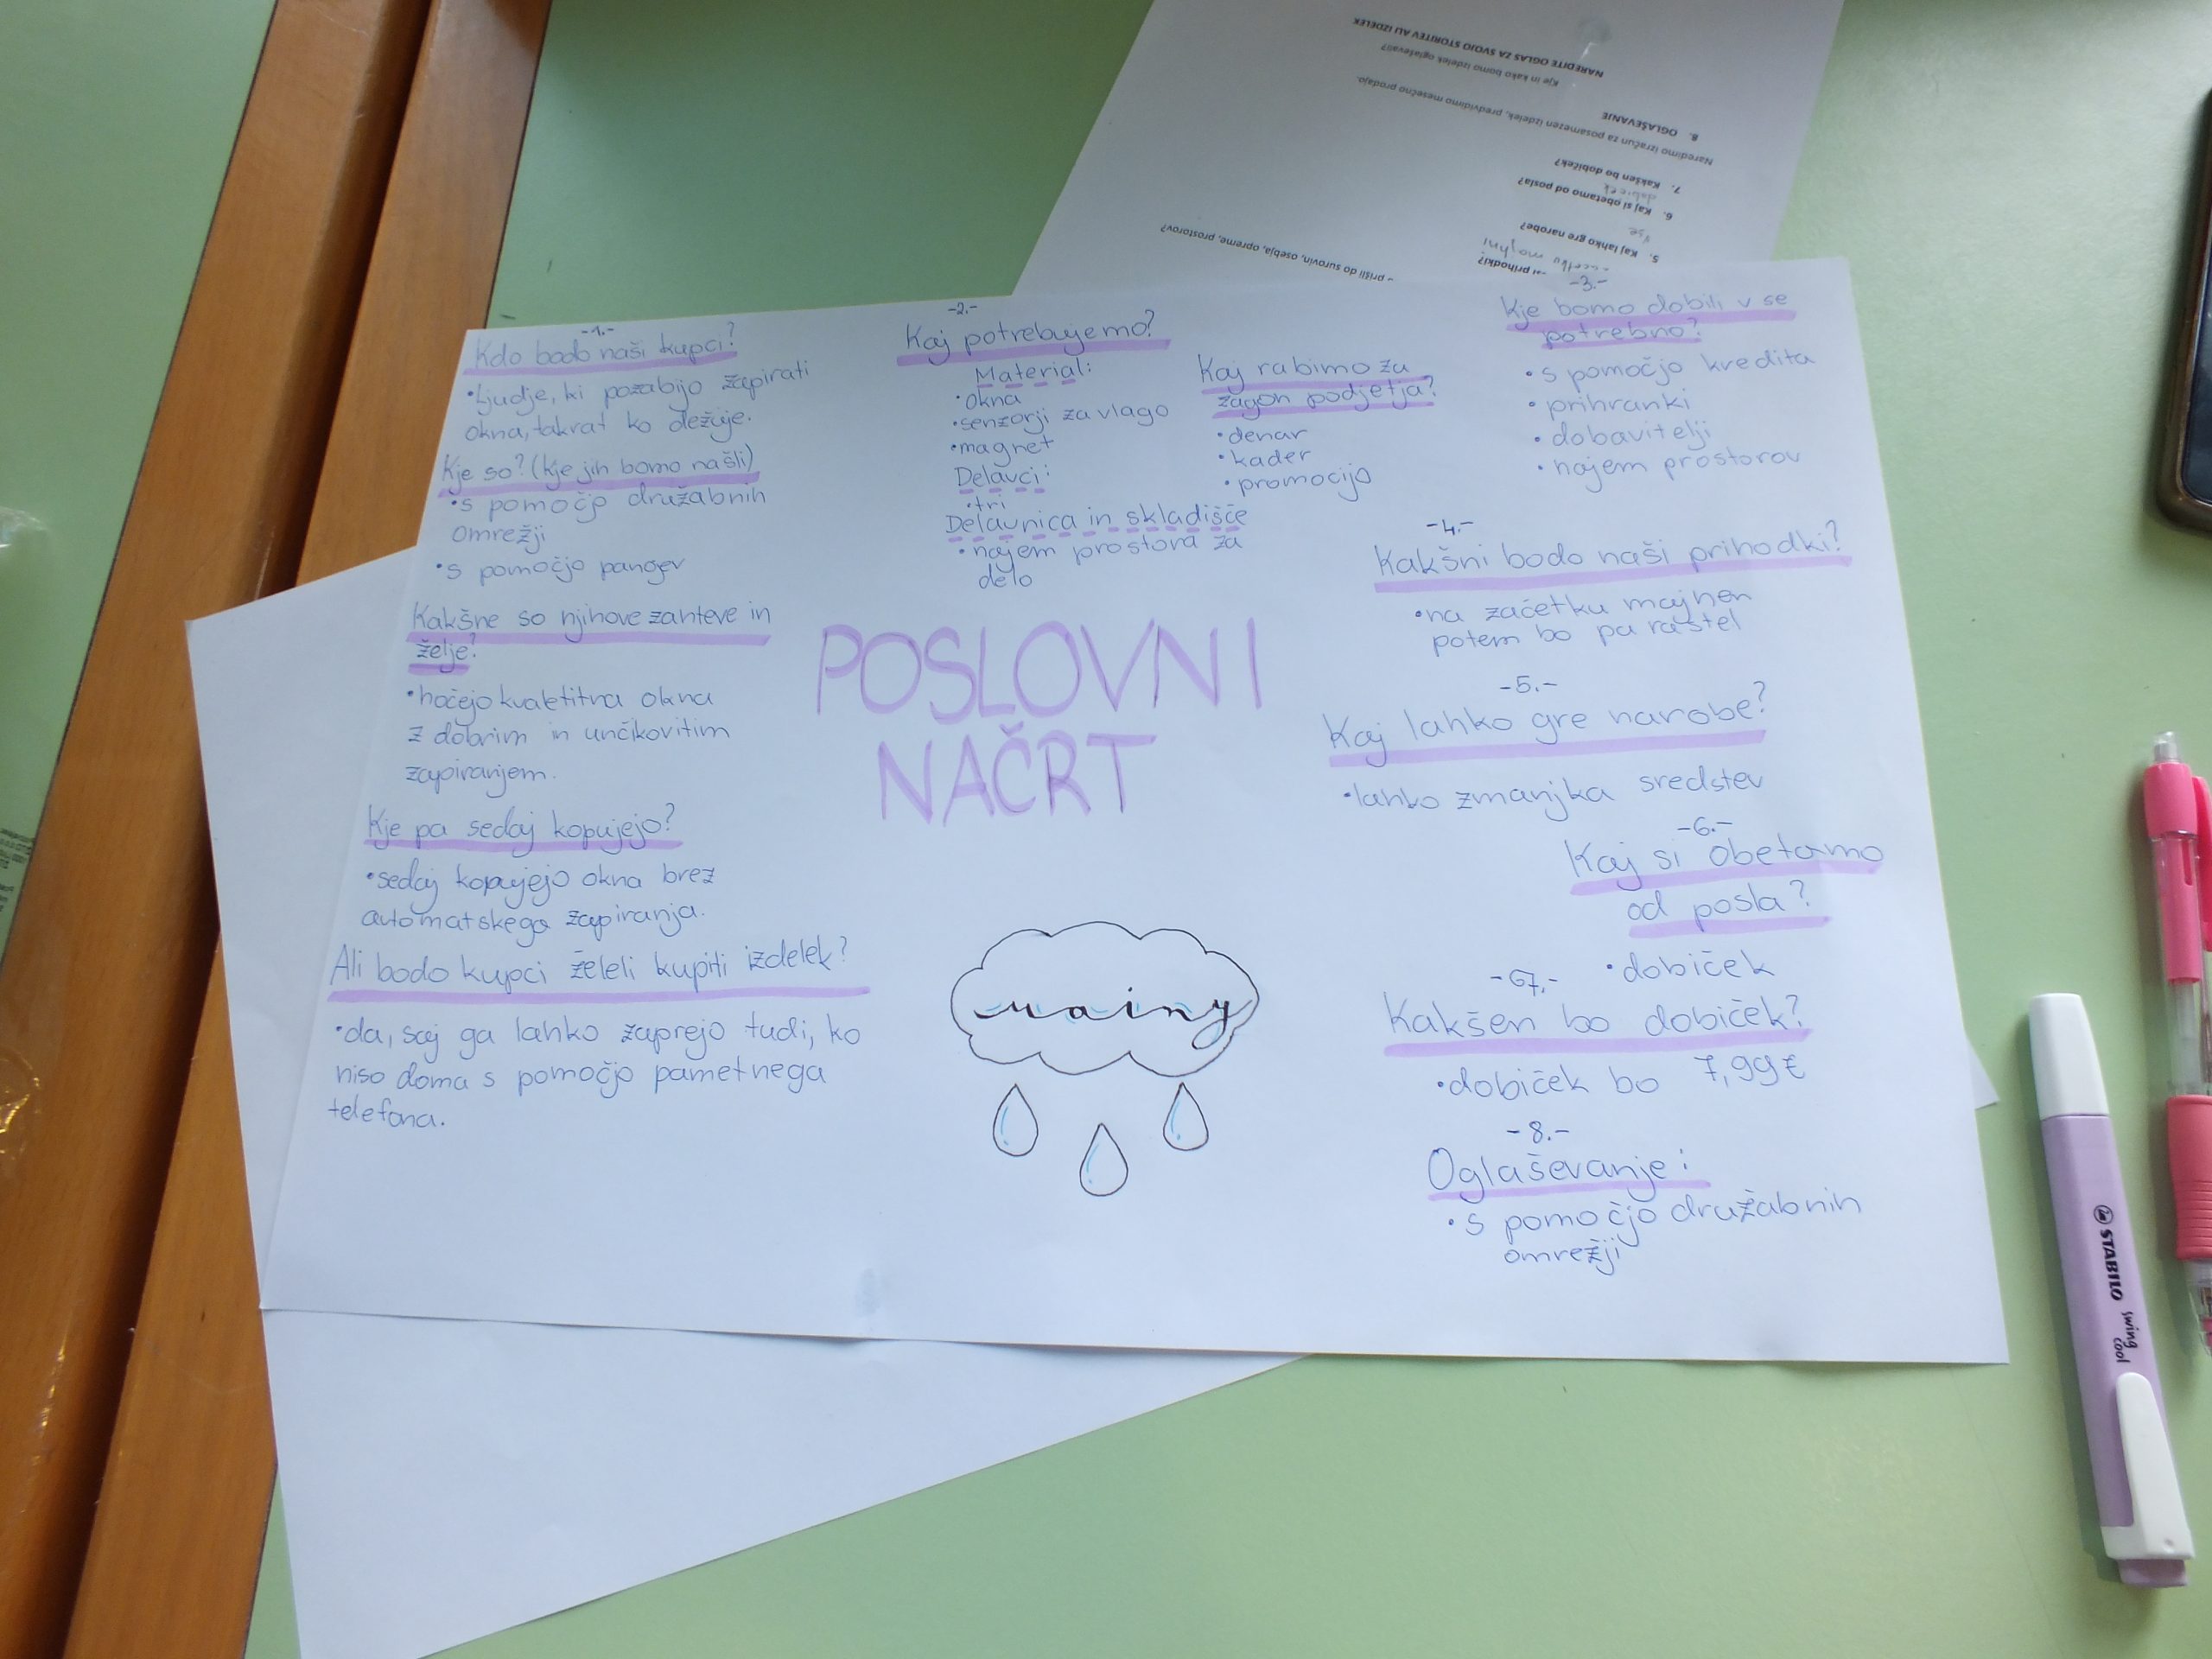 -1.-
Kdo bodo naši kupci?
•Ljudje, ki pozabijo zapirati
okna, takrat ko dežuje.
Kje so? (kje jih bomo našli)
•s pomočjo družabnih
omrežji
•s pomočjo panojev
Kakšne so njihove zahteve in
želje?
•hočejo kvaletitna okna
z dobrim in unčikovitim
zapiranjem.
Kje pa sedaj kopujejo?
•sedaj kopujejo okna brez
avtomatskega zapiranja.
Ali bodo kupci želeli kupiti izdelek?
•da, saj ga lahko zaprejo tudi, ko
niso doma s pomočjo pametnega
telefona.
-2.-
Kaj potrebujemo?
Material:
•okna
•senzorji za vlago
•magnet
Delavci:
•tri
Delavnica in skladišče
•najem prostora za
delo
Kaj rabimo za
zagon podjetja?
•denar
•kader
•promocijo
POSLOVNI
NAČRT
rainy
-3.-
Kje bomo dobili v se
potrebno?
•s pomočjo kredita
•prihranki
•dobavitelji
•najem prostorov
-4.-
Kakšni bodo naši prihodki?
•na začetku majhen
potem bo pa rastel
-5.-
Kaj lahko gre narobe?
•lahko zmanjka sredstev
-6.-
Kaj si obetamo
od posla?
•dobiček
-7.-
Kakšen bo dobiček?
•dobiček bo 7,99€
-8.-
Oglaševanje:
•s pomočjo družabnih
omrežji
prišli do surovin, osebja, opreme, prostorov?
prihodki?
5. Kaj lahko gre narobe?
vse
6. Kaj si obetamo od posla?
dobiček
7. Kakšen bo dobiček?
Naredimo izračun za posamezen izdelek, predvidimo mesečno prodajo.
8. OGLAŠEVANJE
Kje in kako bomo izdelek oglaševali?
NAREDITE OGLAS ZA SVOJO STORITEV ALI IZDELEK
STABILO
swing
cool